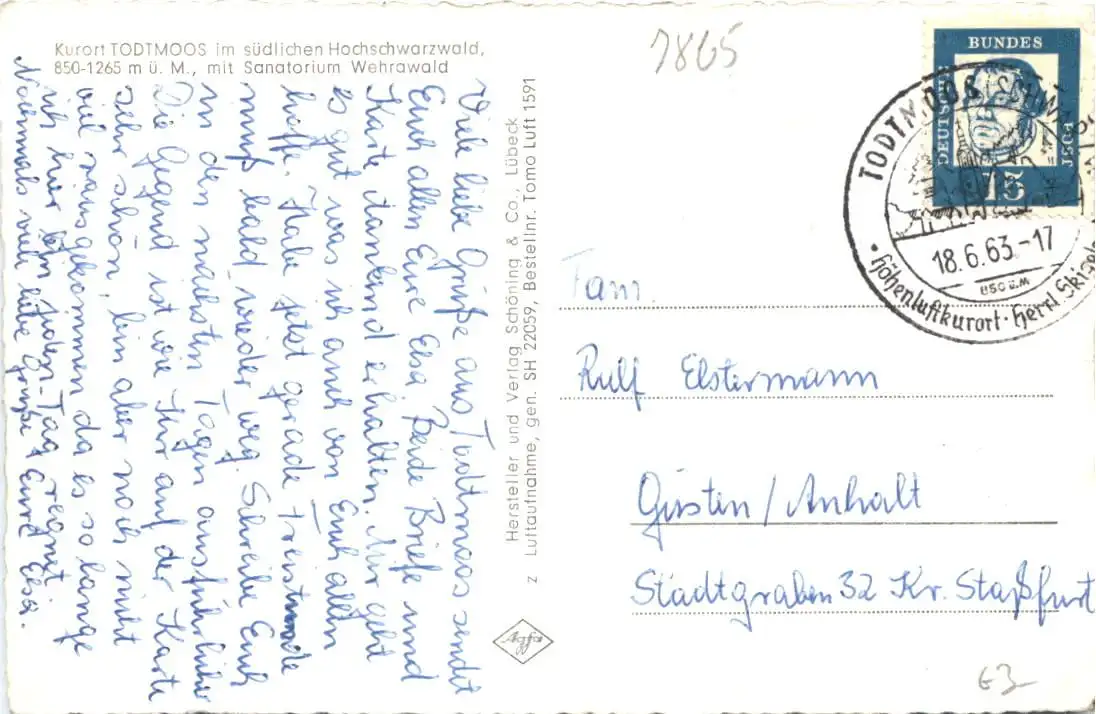 Kurort TODTMOOS im südlichen Hochschwarzwald,
850-1265 m ü. M., mit Sanatorium Wehrawald
Viele liebe Grüße aus Todtmoos sendet
Euch allen Eure Elsa. Beide Briefe und
Karte dankend erhalten. Mir geht
es gut was ich auch von Euch allen
hoffe. Habe jetzt gerade Freistunde
muß bald wieder weg. Schreibe Euch
in den nächsten Tagen ausführlicher
Die Gegend ist wie Ihr auf der Karte
seht schön, bin aber noch nicht
viel rausgekommen da es so lange
ich hier bin jeden Tag regnet.
Nochmals viele liebe Grüße Eure Elsa.
Hersteller und Verlag Schöning & Co., Lübeck
z Luftaufnahme, gen. SH 22059, Bestellnr. Tomo Luft 1591
Agfa
1865
DEUTSCHE
BUNDES
POST
15
TODTMOOS SCHWA
18.6.63.-17
850 ü.M
Höhenluftkurort · Herrl Skigel
Fam.
Rulf Elstermann
Güsten/Anhalt
Stadtgraben 32 Kr. Staßfurt
63